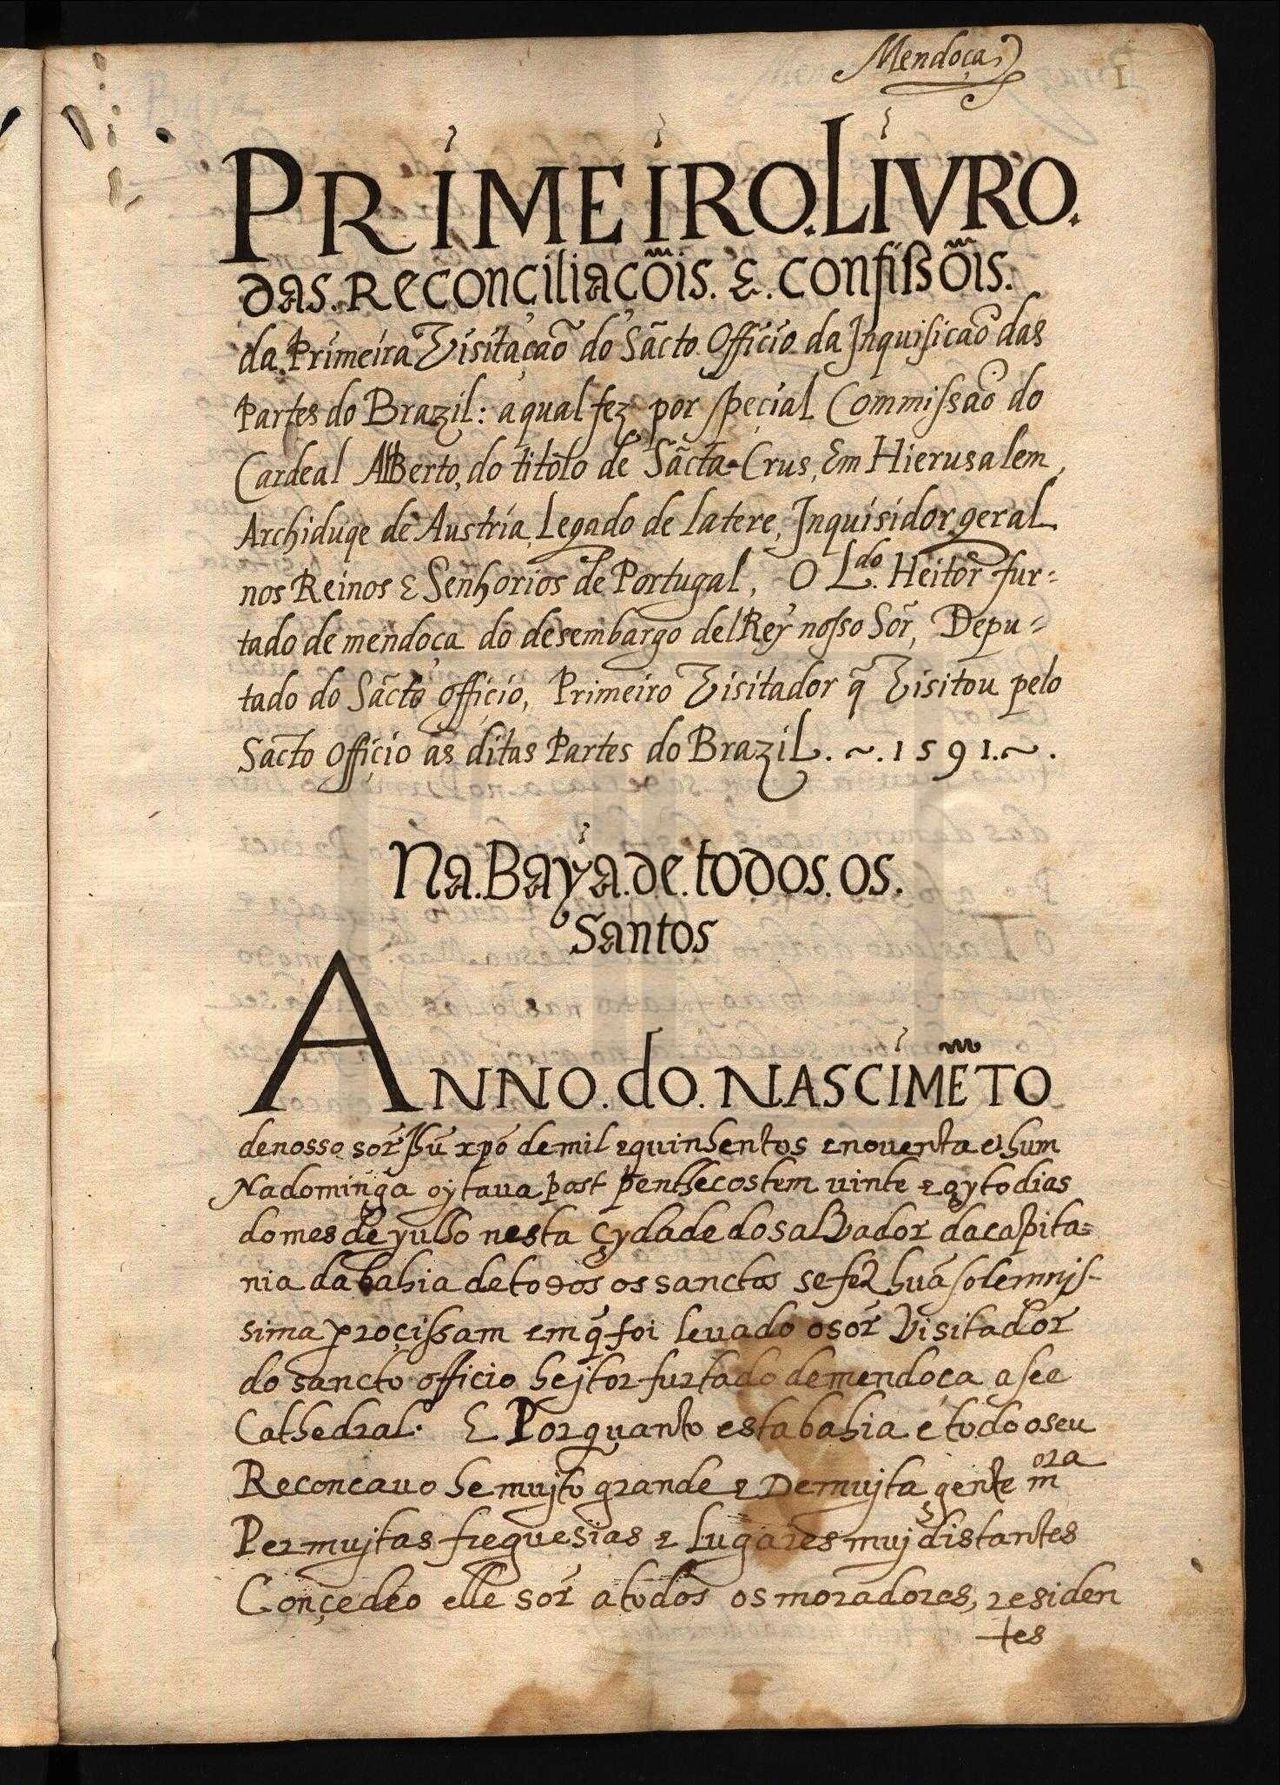 Mendoça
1
PRIMEIRO.LIVRO.
das.Reconciliaçõis.E.confißõis.
da Primeira Visitaçaõ do Sãcto Officio da Inquisicaõ das
Partes do Brazil: aqual fez por special Commissaõ do
Cardeal Alberto, do titolo de Sãcta-Crus, Em Hierusalem,
Archiduqe de Austria, Legado de latere, Inquisidor geral
nos Reinos E Senhorios de Portugal, O Ldo. Heitor fur-
tado de mendoça do desembargo del Rey nosso Sõr, Depu-
tado do Sãcto officio, Primeiro Visitador q̃ Visitou pelo
Sãcto Officio as ditas Partes do Brazil. ~. 1591.~.
Na.Baÿa.de.todos.os.
Santos
ANNO.do.NASCIMẼTO
denosso sõr Jhũ xpõ demil equinhentos enoventa e hum
Nadominga oytaua post penthecostem uinte e oyto dias
domes de yulho nesta Cydade dosalvador dacapita-
nia dabahia detodos ossanctos sefez huã solemnis-
sima proçissam em q̃ foi levado osõr Visitador
do sancto officio hejtor furtado demendoça asee
Cathedral. E Porquanto estabahia e todo oseu
Reconcauo he mujto grande e Demujta gente mora
Per mujtas freguesias e Lugares muj distantes
Conçedeo elle sõr atodos osmoradores, residen
tes